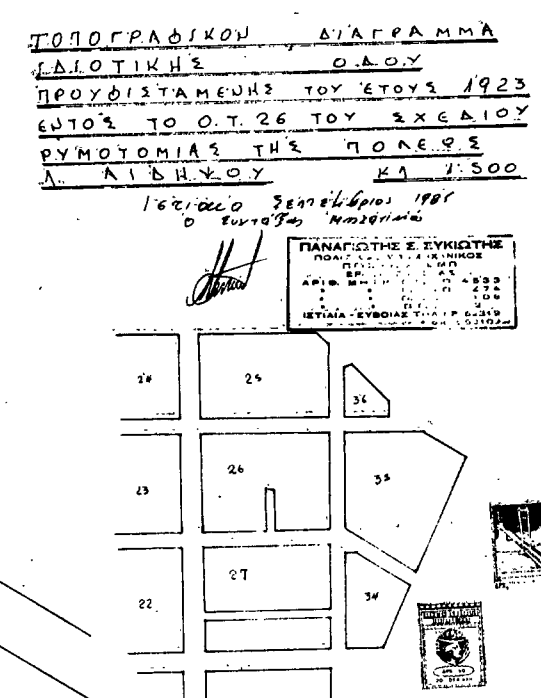 ΤΟΠΟΓΡΑΦΙΚΟΝ ΔΙΑΓΡΑΜΜΑ
ΙΔΙΟΤΙΚΗΣ ΟΔΟΥ
ΠΡΟΥΦΙΣΤΑΜΕΝΗΣ ΤΟΥ ΈΤΟΥΣ 1923
ΕΝΤΟΣ ΤΟ Ο.Τ. 26 ΤΟΥ ΣΧΕΔΙΟΥ
ΡΥΜΟΤΟΜΙΑΣ ΤΗΣ ΠΟΛΕΩΣ
Λ. ΑΙΔΗΨΟΥ ΚΛ 1:500
Ιστιαία Σεπτέμβριος
Ο Συντάξας Μηχανικός
ΠΑΝΑΓΙΩΤΗΣ Σ. ΣΥΚΙΩΤΗΣ
ΑΡΙΘ. 4533
ΙΣΤΙΑΙΑ - ΕΥΒΟΙΑΣ
24
25
36
23
26
35
22
27
34